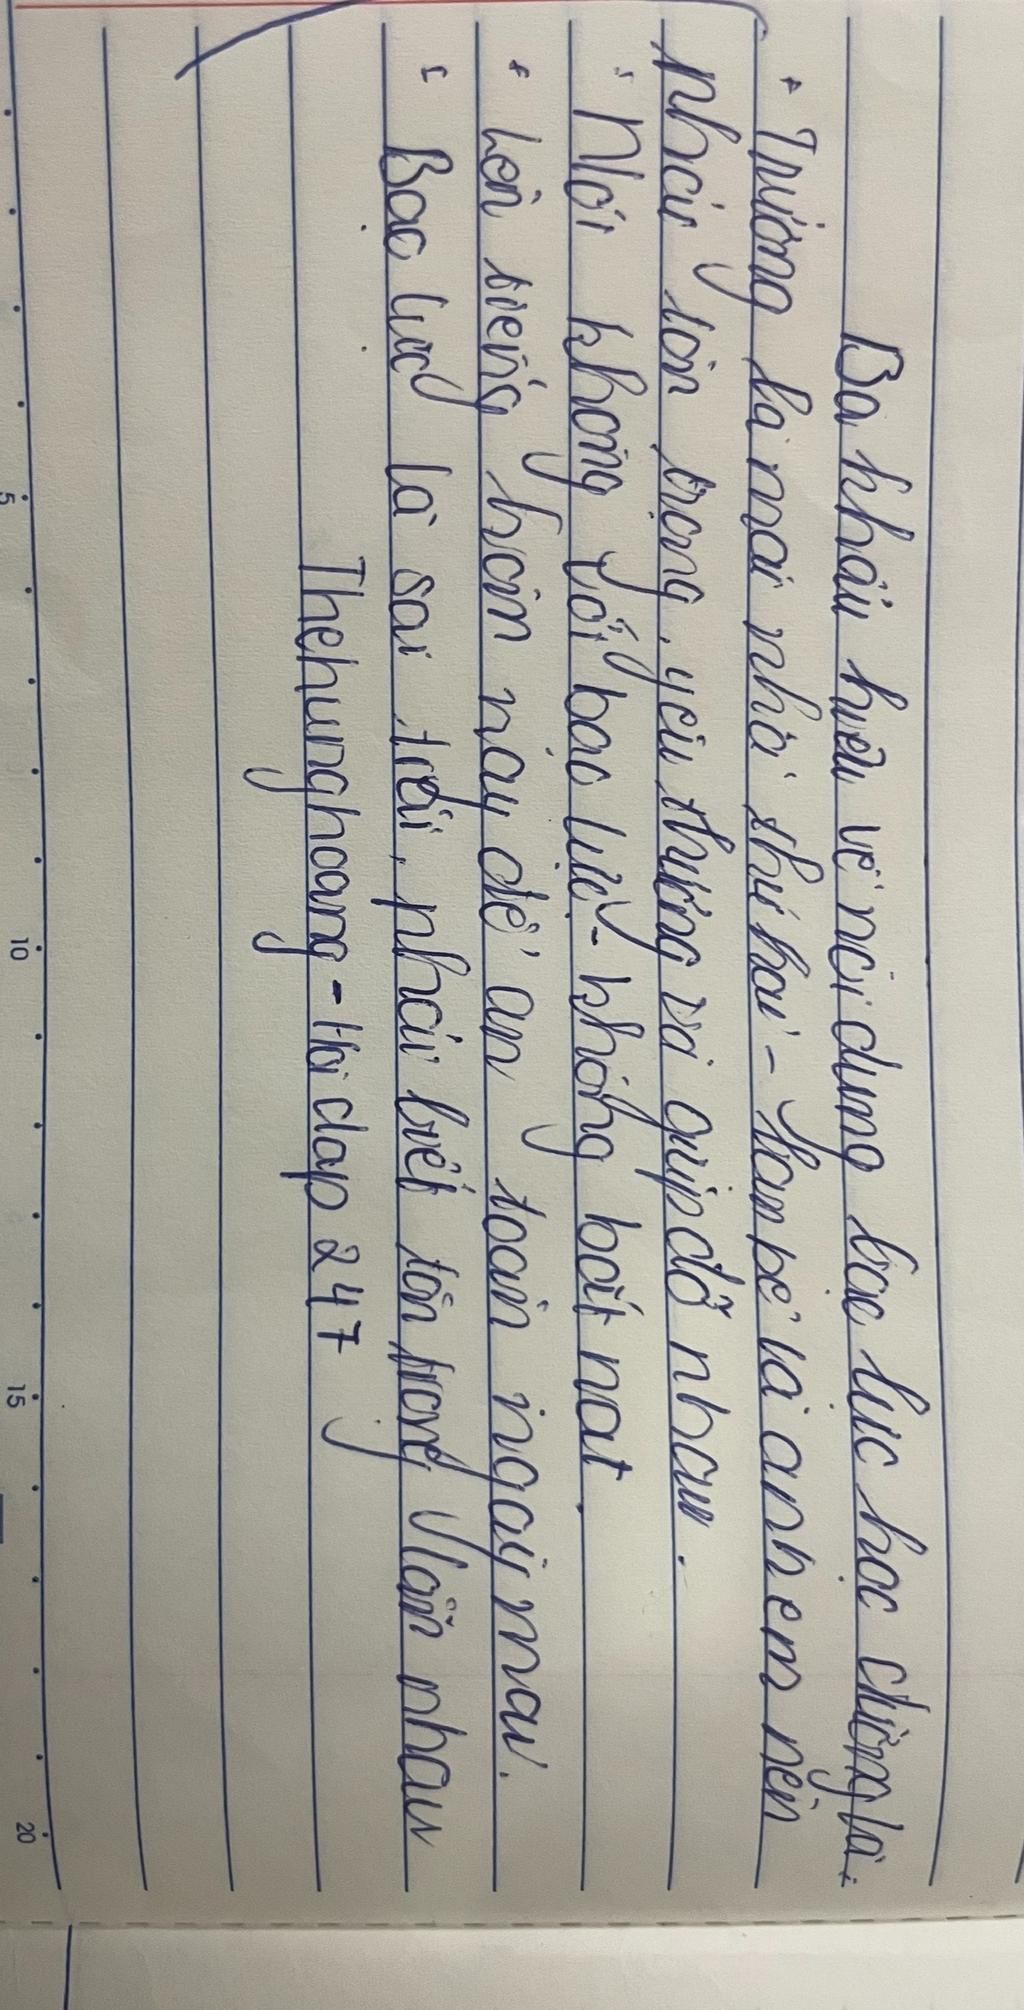 Ba khẩu hiệu về nội dung bạo lực học đường là:
+ Trường là mái nhà thứ hai - bạn bè là anh em nên
phải tôn trọng, yêu thương và giúp đỡ nhau.
Nói không với bạo lực - không bắt nạt.
+ Lên tiếng hôm nay để an toàn ngày mai.
Bạo lực là sai trái, phải biết tôn trọng lẫn nhau
Thehunghoang - Hoidap247
5
10
15
20